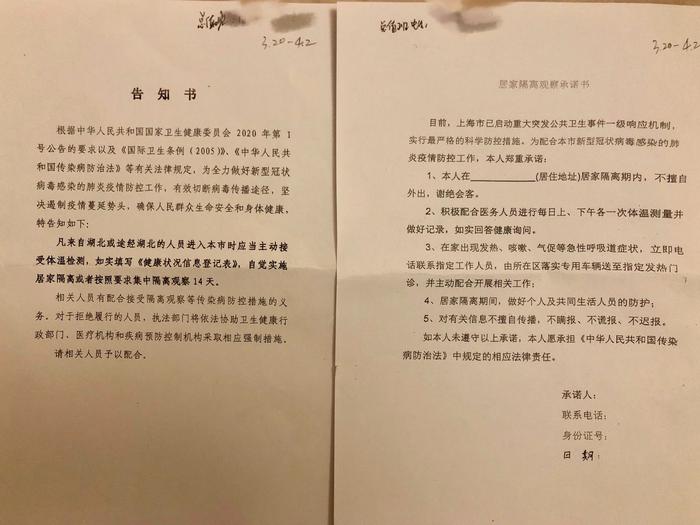 3.20-4.2
告知书
根据中华人民共和国国家卫生健康委员会 2020 年第 1
号公告的要求以及《国际卫生条例（2005）》、《中华人民共
和国传染病防治法》等有关法律规定，为全力做好新型冠状
病毒感染的肺炎疫情防控工作，有效切断病毒传播途径，坚
决遏制疫情蔓延势头，确保人民群众生命安全和身体健康，
特告知如下：
凡来自湖北或途经湖北的人员进入本市时应当主动接
受体温检测，如实填写《健康状况信息登记表》，自觉实施
居家隔离或者按照要求集中隔离观察 14 天。
相关人员有配合接受隔离观察等传染病防控措施的义
务。对于拒绝履行的人员，执法部门将依法协助卫生健康行
政部门、医疗机构和疾病预防控制机构采取相应强制措施。
请相关人员予以配合。
3.20-4.2
居家隔离观察承诺书
目前，上海市已启动重大突发公共卫生事件一级响应机制，
实行最严格的科学防控措施。为配合本市新型冠状病毒感染的肺
炎疫情防控工作，本人郑重承诺：
1、本人在______________(居住地址)居家隔离期内，不擅自
外出，谢绝会客。
2、积极配合医务人员进行每日上、下午各一次体温测量并
做好记录，如实回答健康询问。
3、在家出现发热、咳嗽、气促等急性呼吸道症状，立即电
话联系指定工作人员，由所在区落实专用车辆送至指定发热门
诊，并主动配合开展相关工作；
4、居家隔离期间，做好个人及共同生活人员的防护；
5、对有关信息不擅自传播，不瞒报、不谎报、不迟报。
如本人未遵守以上承诺，本人愿承担《中华人民共和国传染
病防治法》中规定的相应法律责任。
承诺人：
联系电话：
身份证号：
日期：